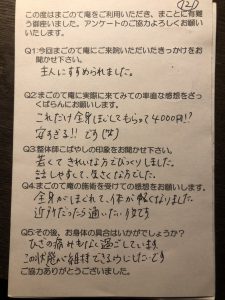 (21)
この度はまごのて庵をご利用いただき、まことに有難
う御座いました。アンケートのご協力よろしくお願い
いたします。
Q1:今回まごのて庵にご来院いただいたきっかけをお
聞かせ下さい。
主人にすすめられました。
Q2:まごのて庵に実際に来てみての率直な感想をざっ
くばらんにお願いします。
これだけ全身ほぐしてもらって4000円!?
安すぎる!!です(笑)
Q3:整体師こばやしの印象をお聞かせ下さい。
若くてきれいな方でびっくりしました。
話しやすくて、楽しくなりました。
Q4:まごのて庵の施術を受けての感想をお願いします。
全身がほぐれて、体が軽くなりました。
近所だったら通いたい位です
Q5:その後、お身体の具合はいかがでしょうか?
ひざの痛みもなく過ごしています。
この状態が維持できるとうれしいです
ご協力ありがとうございました。